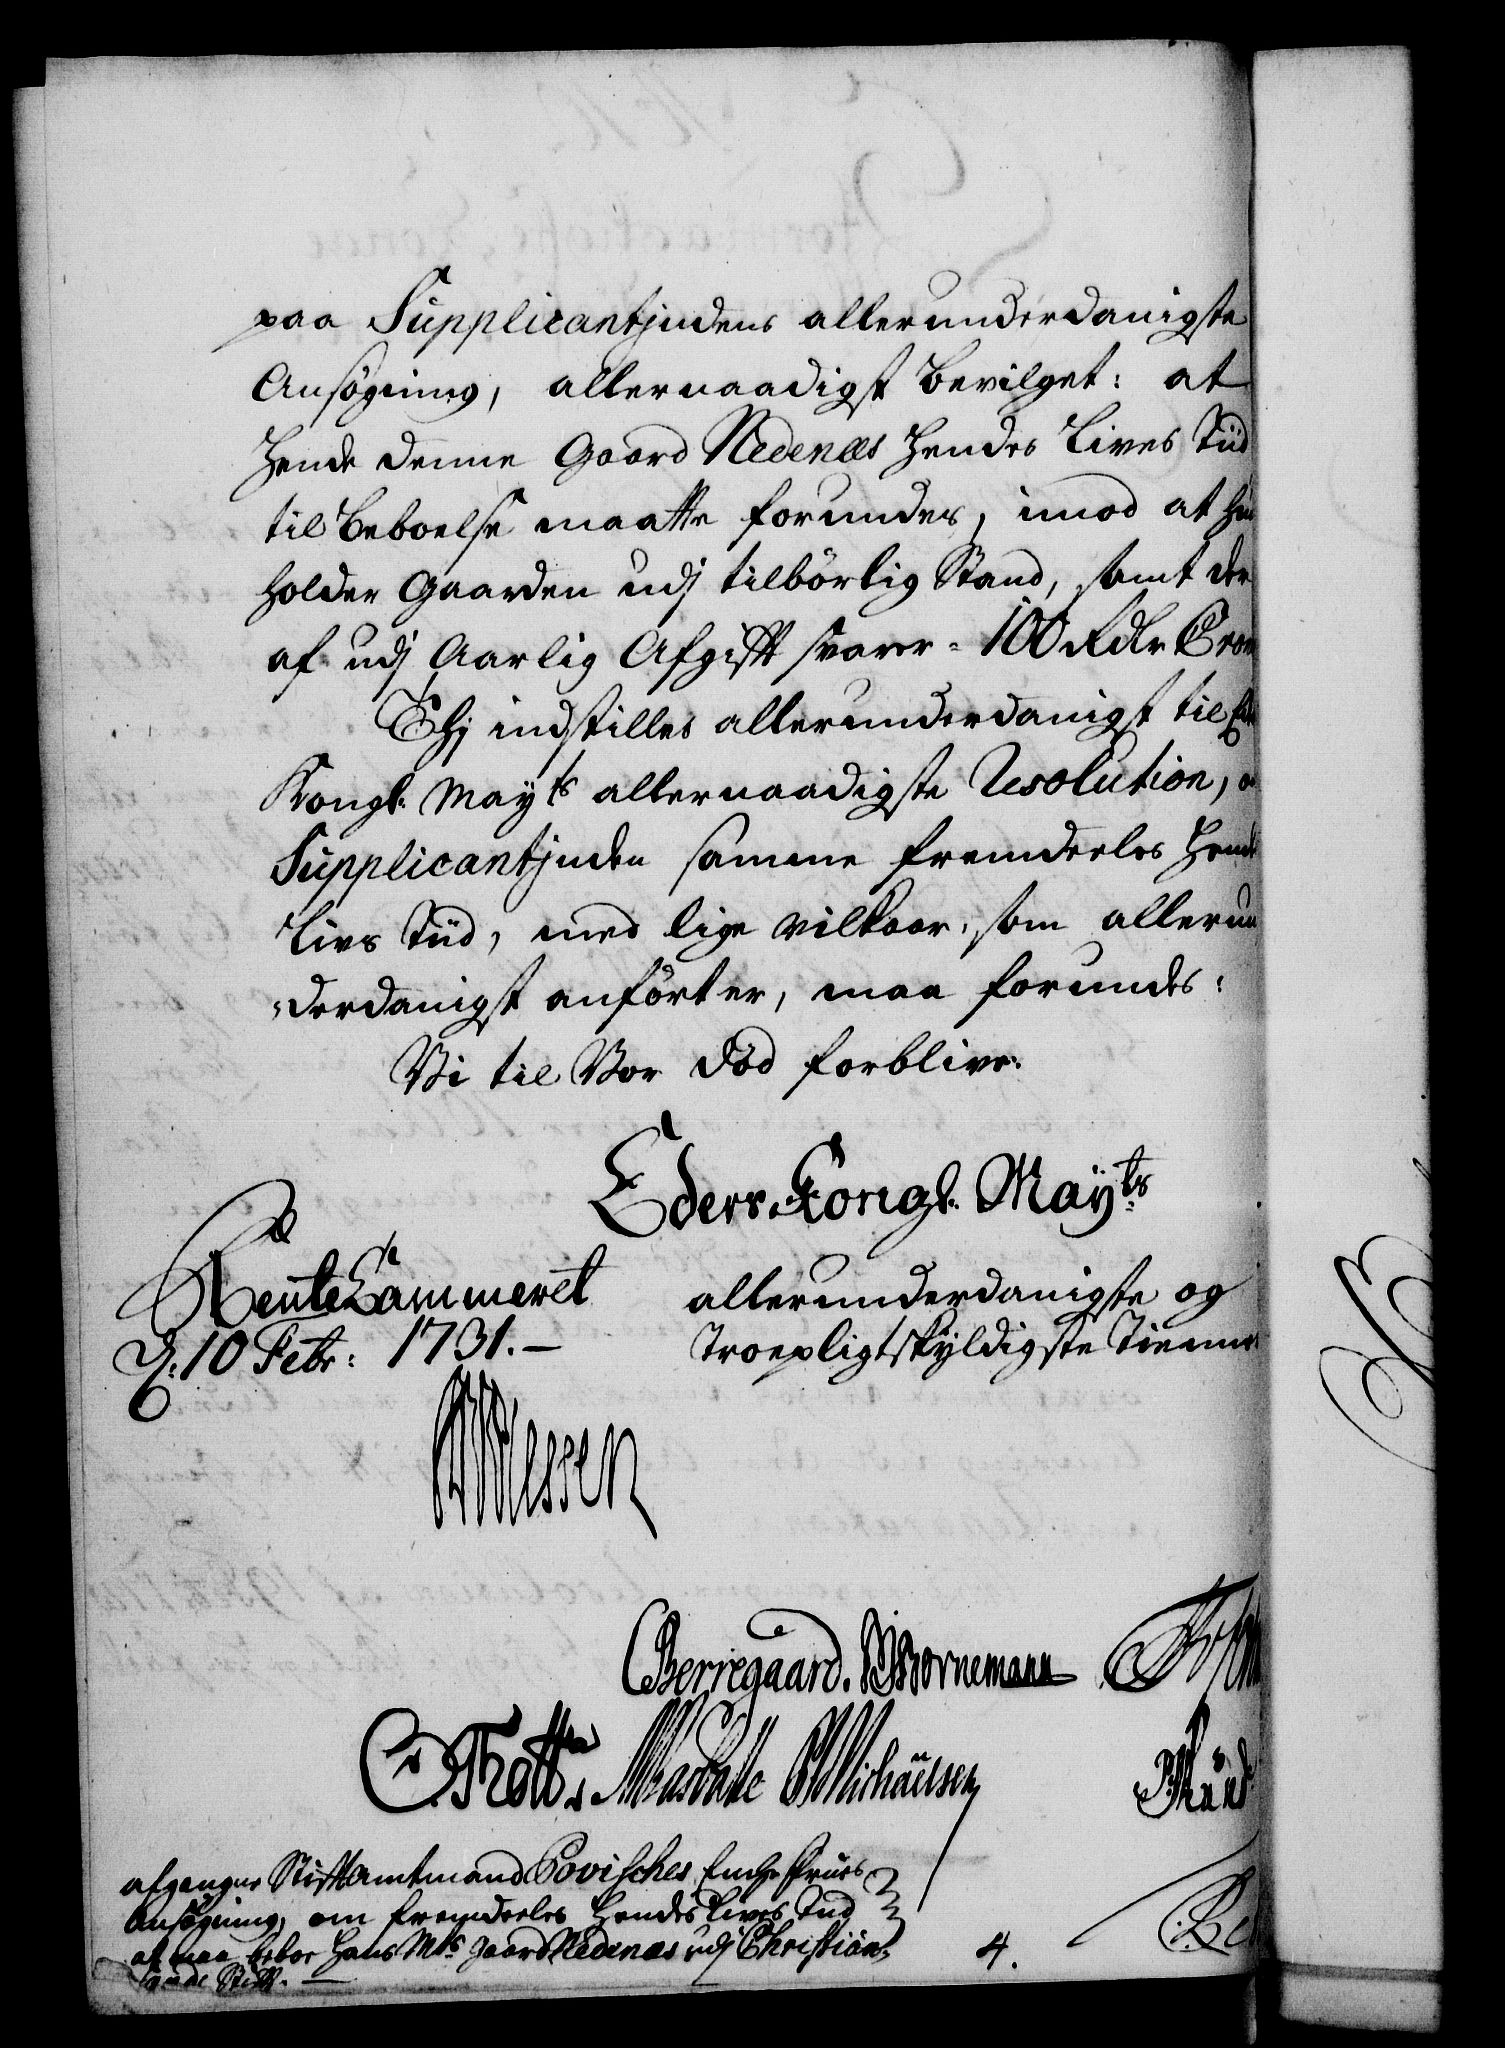 paa Supplicantjndens allerunderdanigste
Ansögning, allernaadigst bevilget: at
Hende denne Gaard Nedenæs Hendes Lives Tiid
til beboelse maatte forundes, imod at hun
holder Gaarden udj tilbörlig Stand, samt der
af udj Aarlig Afgifft svarer = 100 Rdlr Cron
Thj indstilles allerunderdanigst til
Kongl. Mayts allernaadigste Resolution,
Supplicantjnden samme fremdeeles Hendes
Livs Tiid, med lige vilkaar, som allerun
=derdanigst anfört er, maa forundes:
Vi til Vor död forblive:
Eders Kongl. Mayts
RenteCammeret allerunderdanigste og
D: 10 Febr: 1731.— Troepligtskyldigste Tienere
Berregaard. Bornemann
C. Thott. Michaëlsen
afgangne Stiftamtmand Povisches Enche Frues
Ansögning, om fremdeeles Hendes Lives Tiid
at maa beboe Hans Mts gaard Nedenæs udj Christian-
sands Stift.—
4.